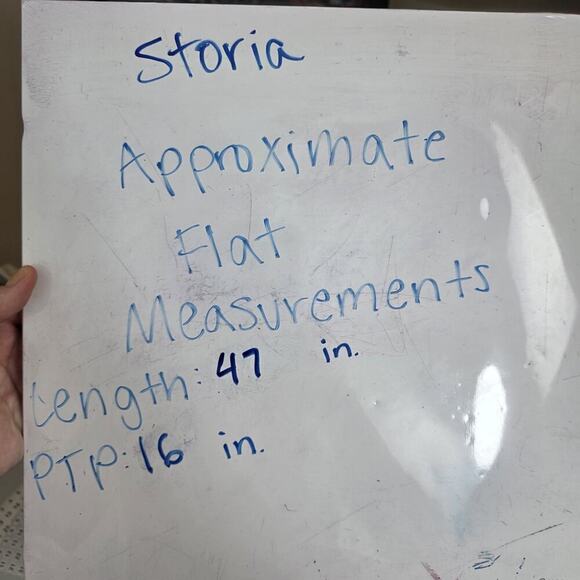 Storia
Approximate
Flat
Measurements
Length: 47 in.
PTP: 16 in.